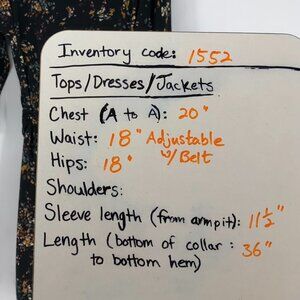 Inventory code: 1552
Tops/Dresses/Jackets
Chest (A to A): 20"
Waist: 18" Adjustable
Hips: 18" w/ Belt
Shoulders:
Sleeve length (from armpit): 11½"
Length (bottom of collar : 36"
to bottom hem)